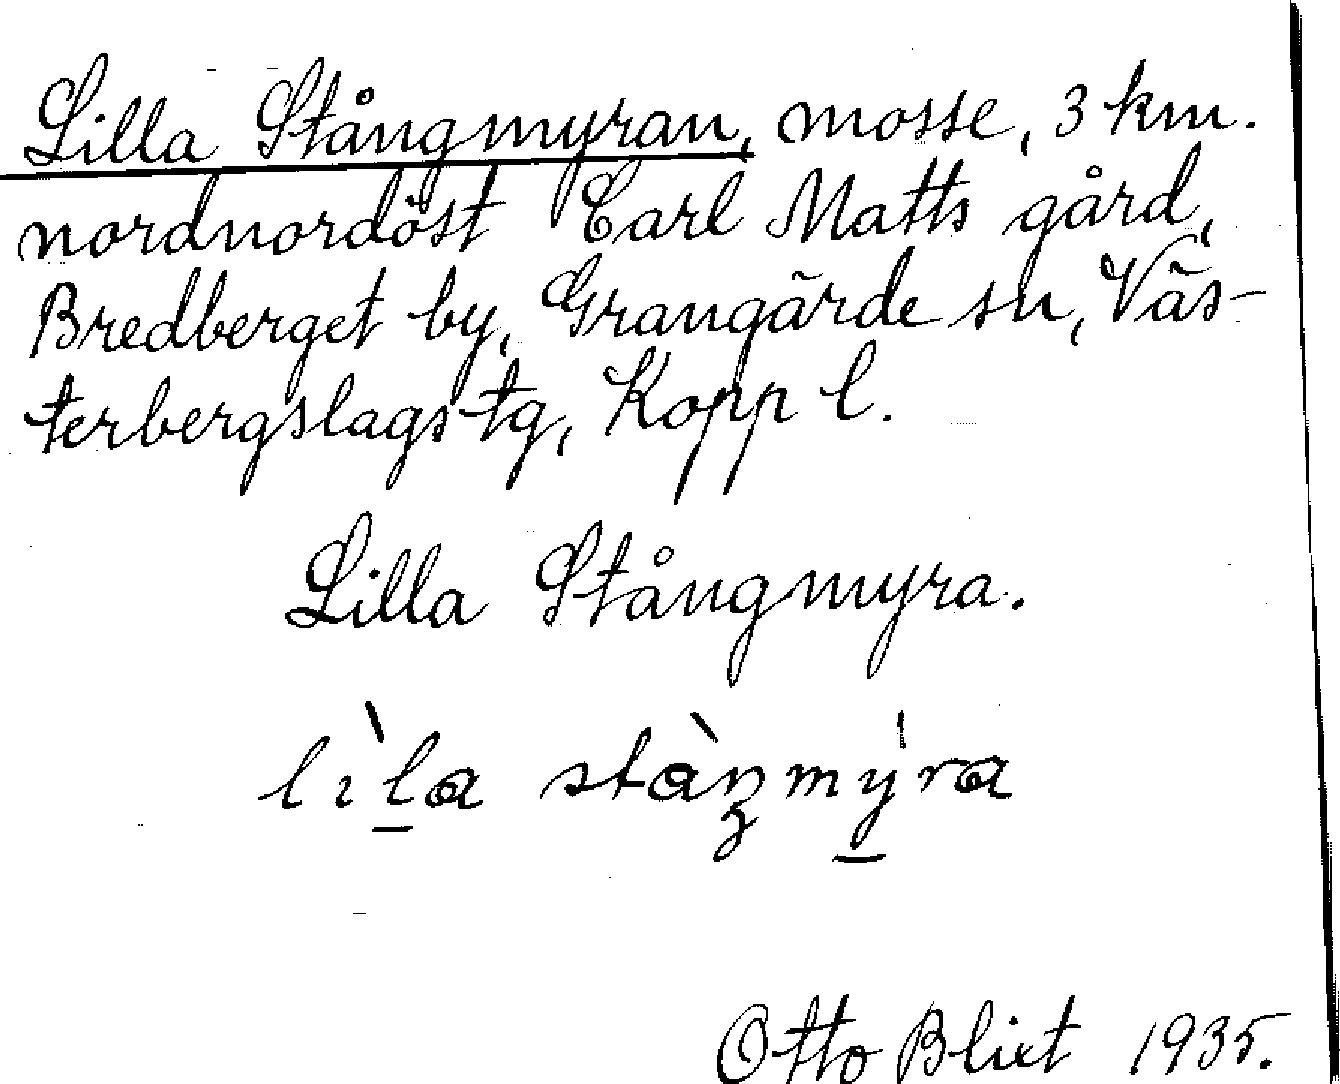 Lilla Stångmyran, mosse, 3 km.
nordnordöst Carl Matts gård,
Bredberget by, Grangärde sn, Väs-
terbergslags tg, Kopp l.
Lilla Stångmyra.
lìla stàŋmýra
Otto Blixt 1935.